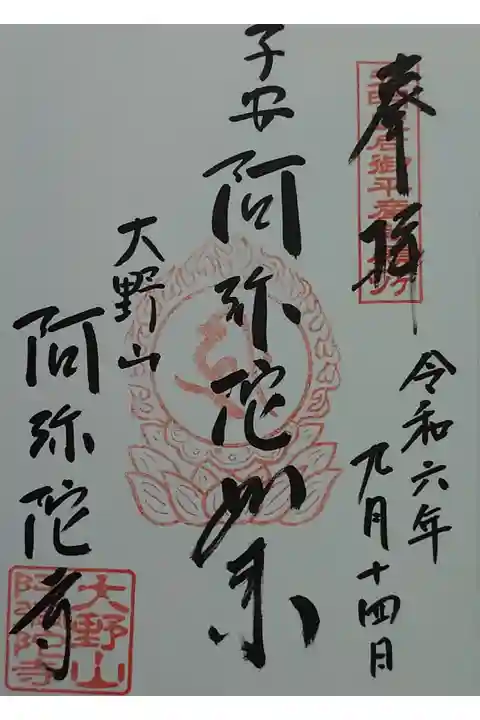 奉拝
令和六年
九月十四日
子安阿弥陀如来
大野山
阿弥陀寺
大野山
阿弥陀寺